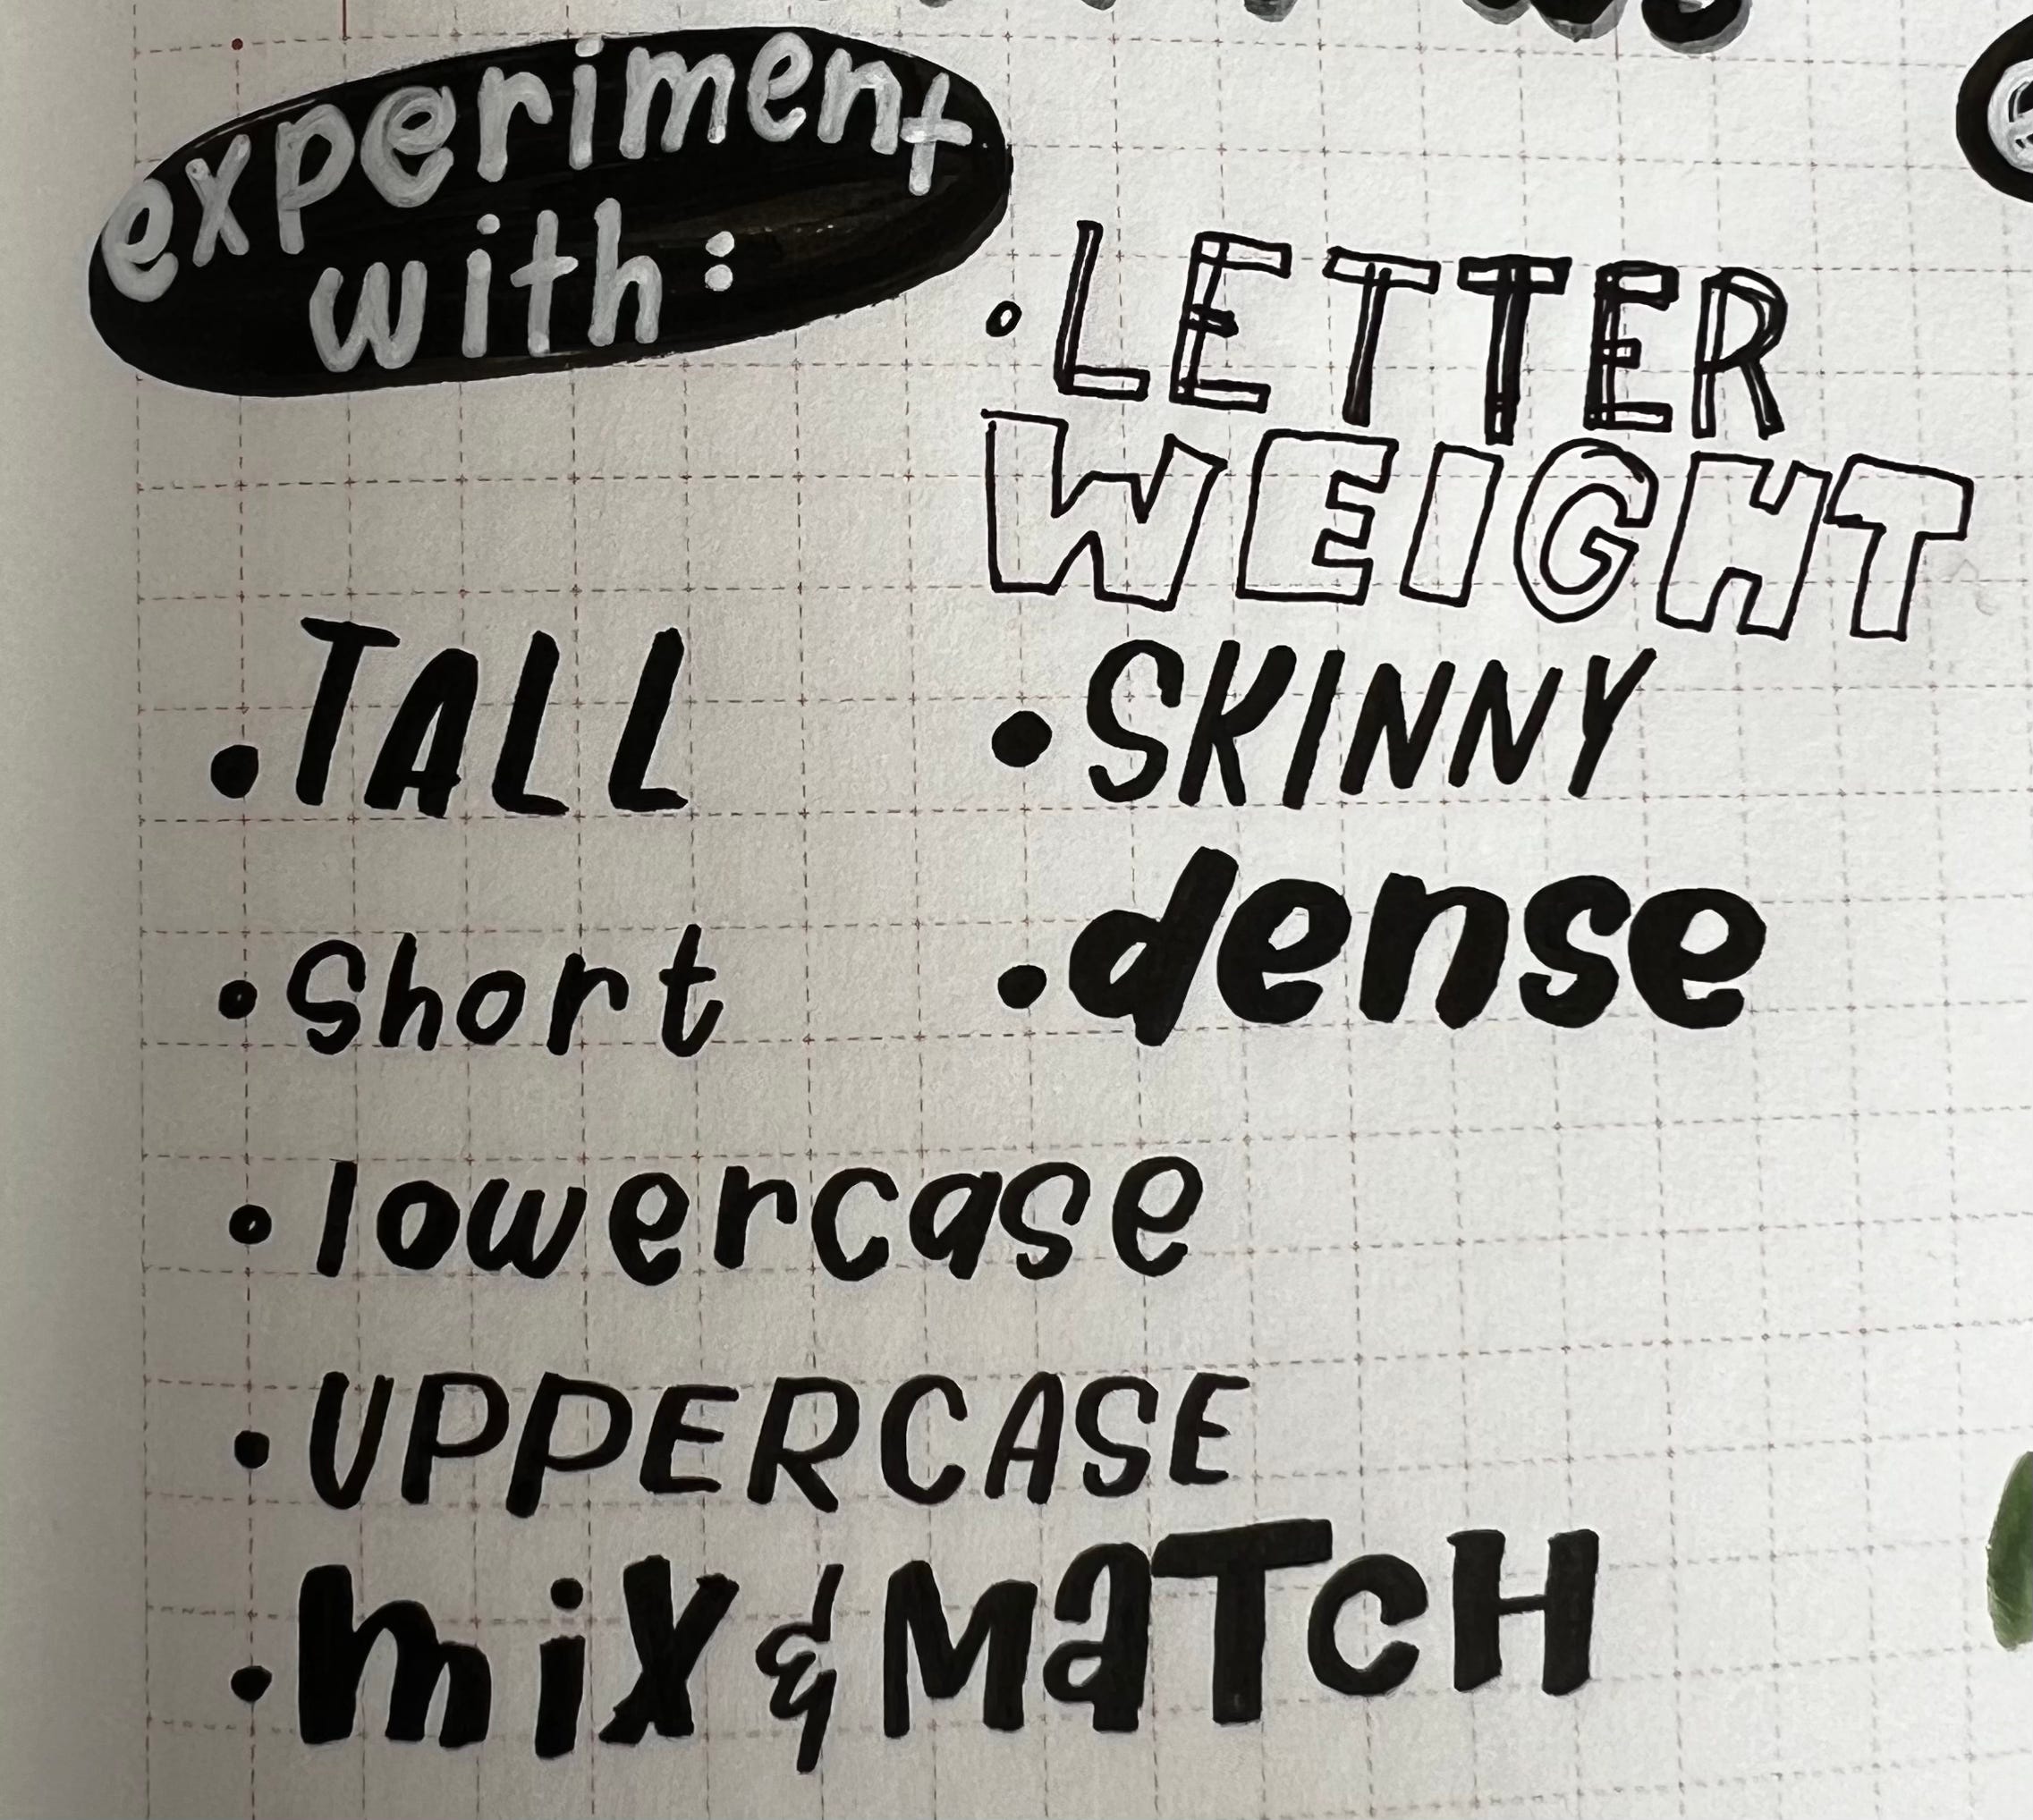 experiment
with:
• LETTER
WEIGHT
• TALL
• SKINNY
• Short
• dense
• lowercase
• UPPERCASE
• miX & MaTcH